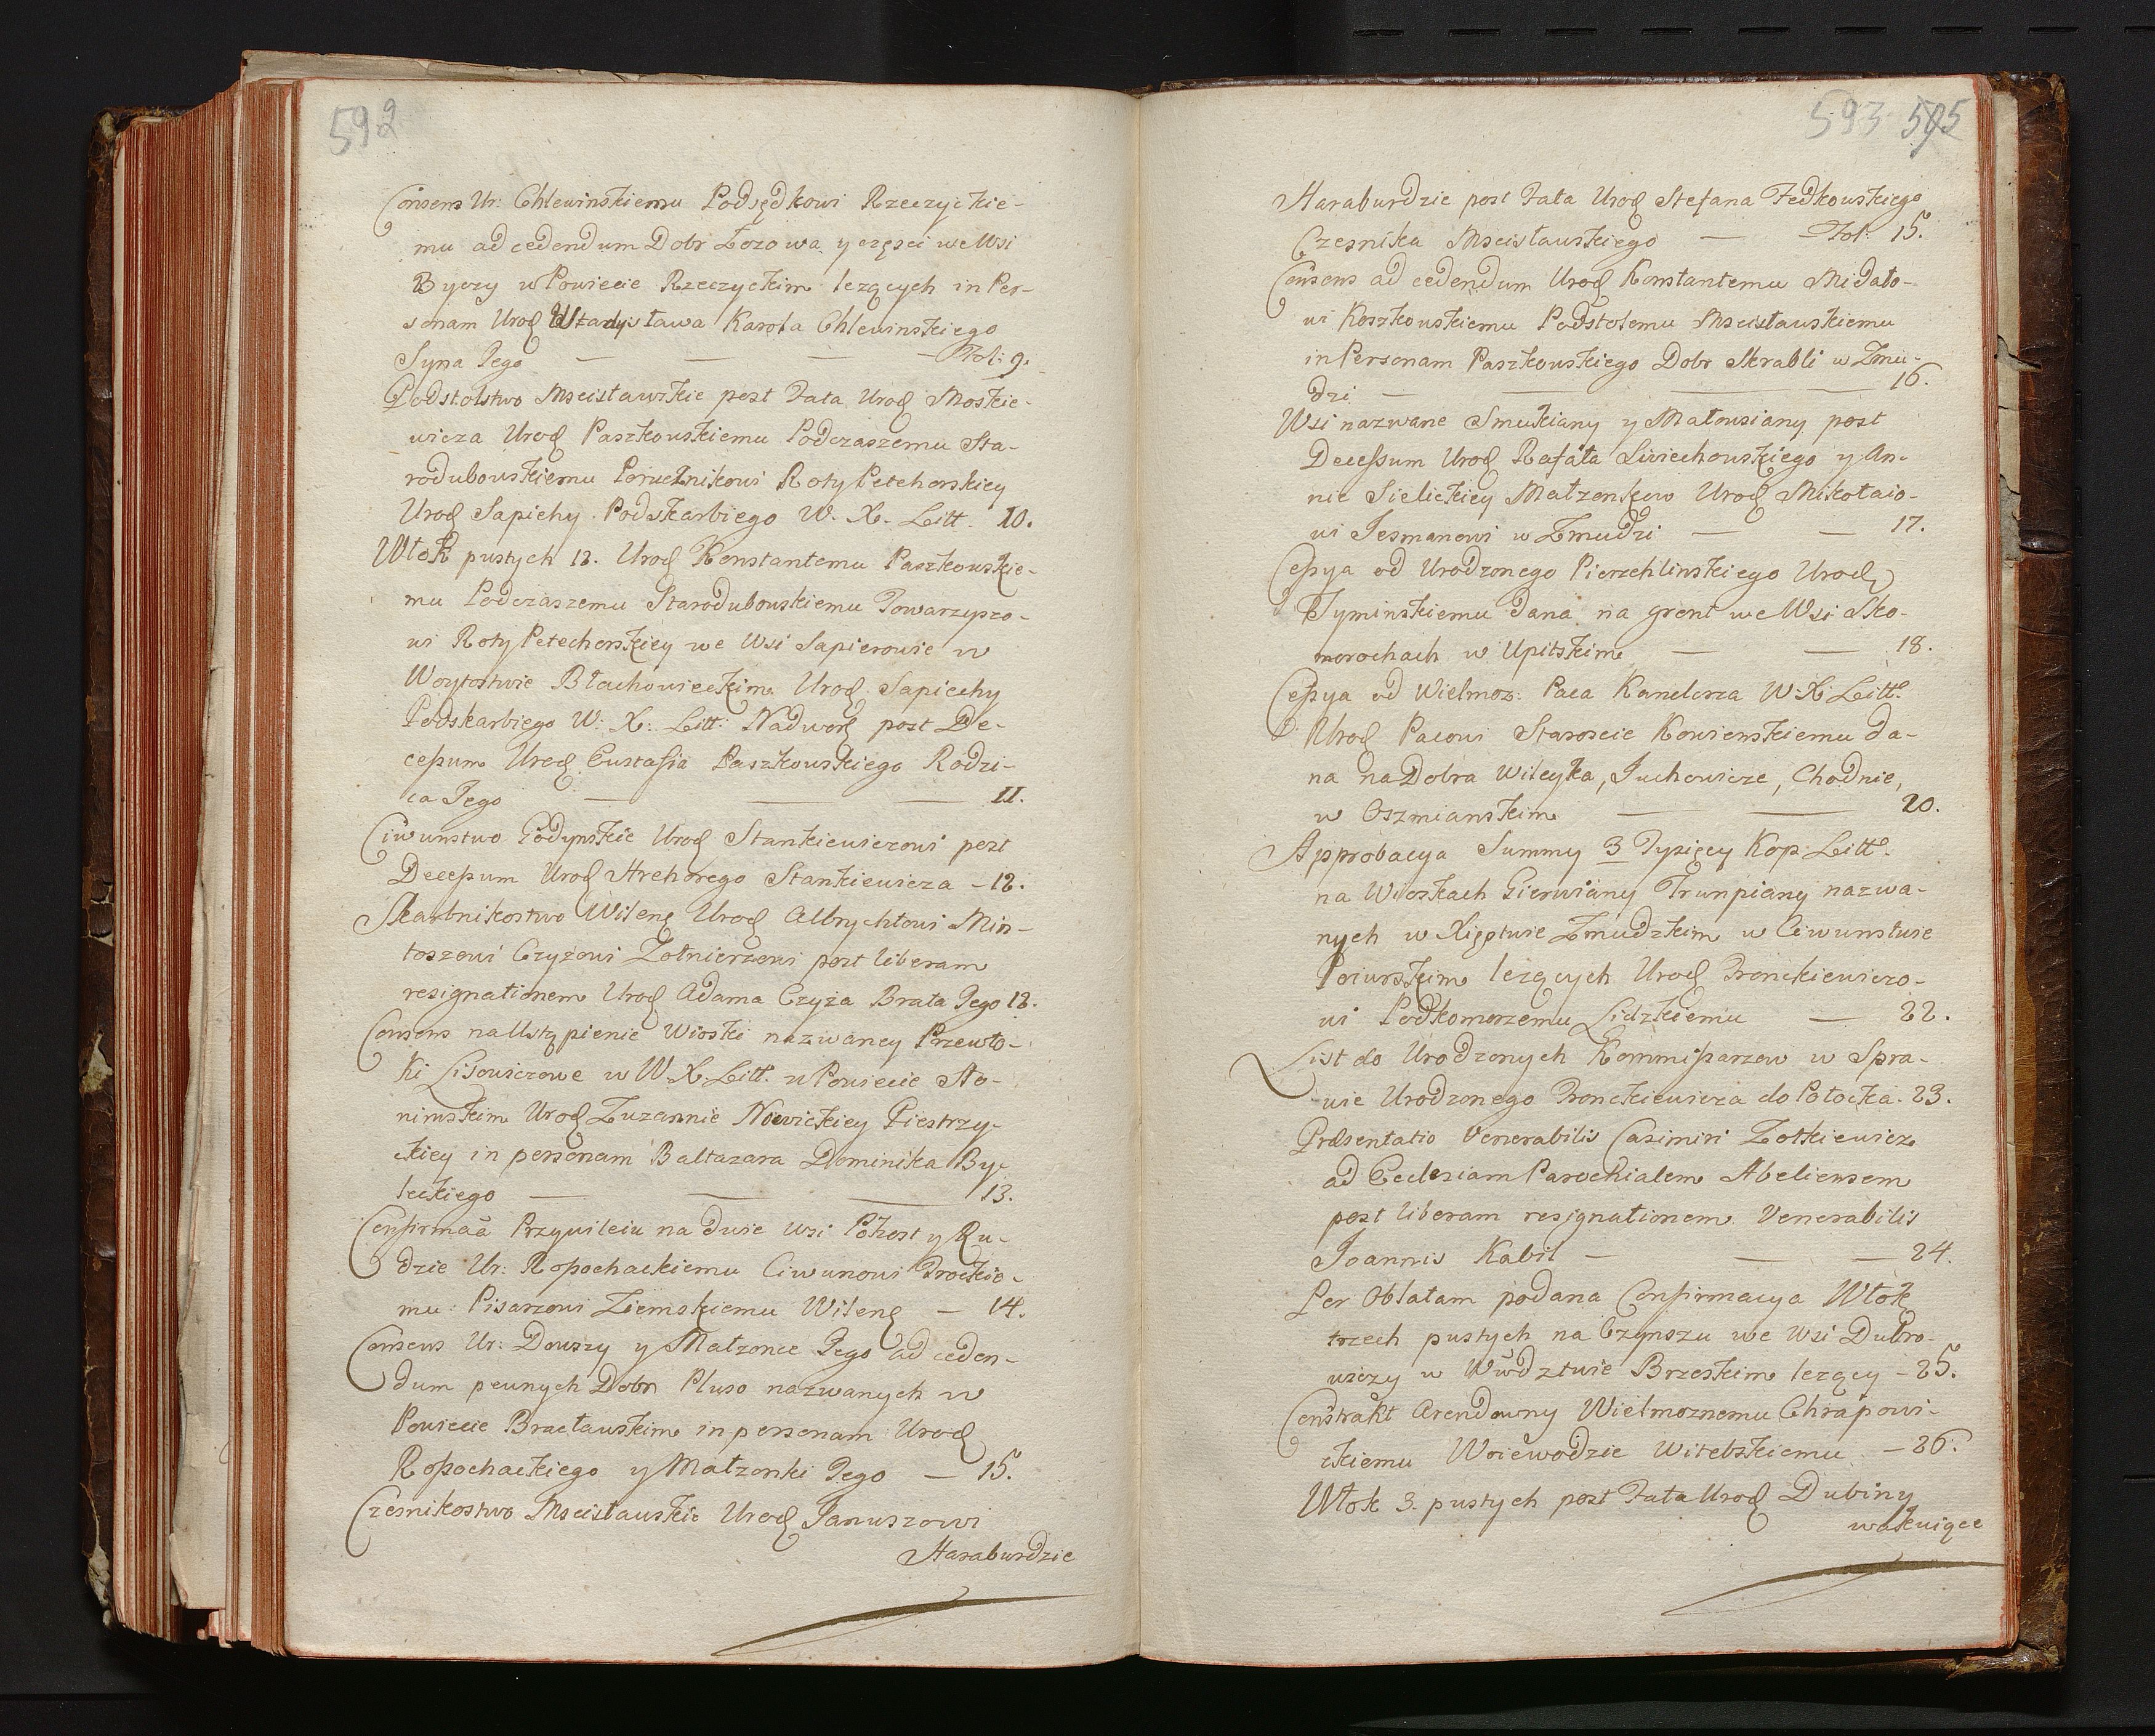 592
Consens Ur: Chlewinskiemu Podsędkowi Rzeczyckie-
mu ad cedendum Dobr Zozowa y częsci we Wsi
Byczy w Powiecie Rzeczyckim lezących in Per-
sonam Urod Władysława Karola Chlewinskiego
Syna Jego — — — — Fol: 9.
Podstolstwo Mscisławskie post Fata Urod Moskie-
wicza Urod Paszkowskiemu Podczaszemu Sta-
rodubowskiemu Porucznikowi Roty Petehorskiey
Urod Sapiehy Podskarbiego W. X. Litt. 10.
Włok pustych 12. Urod Konstantemu Paszkowskie-
mu Podczaszemu Starodubowskiemu Towarzyszo-
wi Roty Petechorskiey we Wsi Sapierowie w
Woytostwie Błachowieckim Urod Sapiechy
Podskarbiego W: X: Litt: Nadwor post De-
cessum Urod Eustassia Paszkowskiego Rodzi-
ca Jego — — — 11.
Ciwunstwo Godynskie Urod Stankiewiczowi post
Decessum Urod Hrehorego Stankiewicza – 12.
Skarbnikostwo Wilene Urod Albrychtowi Min-
toszowi Czyżowi Zołnierzowi post liberam
resignationem Urod Adama Czyża Brata Jego 12.
Consens na Ustąpienie Wioski nazwaney Przewło-
ki Lisowiczowe w W. X. Litt. w Powiecie Sło-
nimskim Urod Zuzannie Nowickiey Piestrzy-
ckiey in personam Baltazara Dominika By-
leckiego — — — 13.
Confirmaã Przywileiu na dwie Wsi Pohost y Ru-
dzie Ur: Ropochackiemu Ciwunowi Trockie-
mu Pisarzowi Ziemskiemu Wilenę — 14.
Consens Ur: Dowszy y Małzonce Jego ad ceden-
dum pewnych Dobr Pluso nazwanych w
Powiecie Bracławskim in personam Urod
Ropochackiego y Małzonki Jego — 15.
Czesnikostwo Mscisławskie Urod Januszowi
Haraburdzie
593 595
Haraburdzie post Fata Urod Stefana Fedkowskiego
Czesnika Mscisławskiego — — Fol: 15.
Consens ad cedendum Urod Konstantemu Midato-
wi Koszkowskiemu Podstolemu Mscisławskiemu
in Personam Paszkowskiego Dobr Skrabli w Zmu-
dzi — — — 16.
Wsi nazwane Smukiany y Małousiany post
Decessum Urod Rafała Swiechowskiego y An-
nie Sielickiey Małzonkow Urod Mikołaio-
wi Jesmanowi w Zmudzi — — 17.
Cessya od Urodzonego Pierzchlinskiego Urod
Tyminskiemu dana na gront we Wsi Sko-
morochach w Upitskim — — 18.
Cessya od Wielmoz: Paca Kanclerza W: X: Litt.
Urod Pacowi Staroscie Kowienskiemu da-
na na Dobra Wileyka, Juchowicze, Chodnie,
w Oszmianskim — — 20.
Approbacya Summy 3 Tysięcy Kop: Litt.
na Wioskach Gierwiany Trunpiany nazwa-
nych w Xięstwie Zmudzkim w Ciwunstwie
Poiurskim lezących Urod Fronckiewiczo-
wi Podkomorzemu Lidzkiemu — 22.
List do Urodzonych Kommissarzow w Spra-
wie Urodzonego Fronckiewicza do Połocka. 23.
Præsentatio Venerabilis Casimiri Zołkiewicz
ad Ecclesiam Parochialem Abeliensem
post liberam resignationem Venerabilis
Joannis Kabil — — — 24.
Per Oblatam podana Confirmacya Włok
trzech pustych na Czynszu we Wsi Dubro-
wiczy w Wwdztwie Brzeskim lezący – 25.
Constrakt Arendowny Wielmoznemu Chrapowi-
ckiemu Woiewodzie Witebskiemu – 26.
Włok 3. pustych post Fata Urod Dubiny
wakuiące